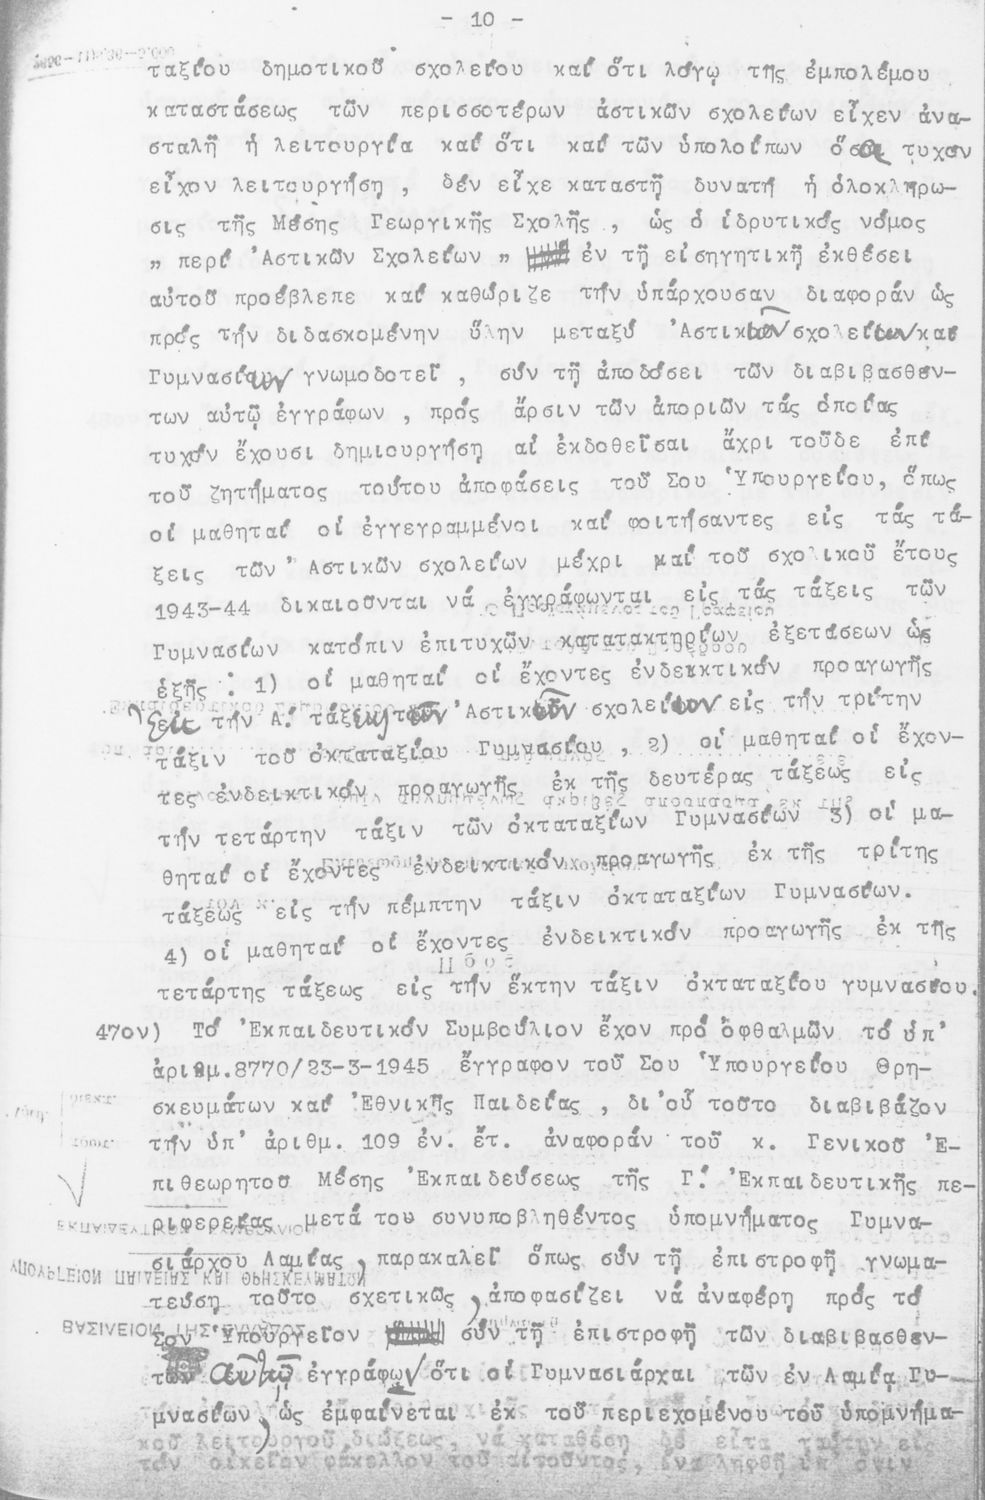 - 10 -
ταξίου δημοτικοῦ σχολείου καί ὅτι λόγῳ τῆς ἐμπολέμου
καταστάσεως τῶν περισσοτέρων ἀστικῶν σχολείων εἶχεν ἀνα-
σταλῆ ἡ λειτουργία καί ὅτι καί τῶν ὑπολοίπων ὅσα τυχόν
εἶχον λειτουργήσῃ , δέν εἶχε καταστῆ δυνατή ἡ ὁλοκλήρω-
σις τῆς Μέσης Γεωργικῆς Σχολῆς , ὡς ὁ ἱδρυτικός νόμος
„ περί Ἀστικῶν Σχολείων „ ἐν τῇ εἰσηγητικῇ ἐκθέσει
αὐτοῦ προέβλεπε καί καθώριζε τήν ὑπάρχουσαν διαφοράν ὡς
πρός τήν διδασκομένην ὕλην μεταξύ Ἀστικῶν σχολείων καί
Γυμνασίων γνωμοδοτεῖ , σύν τῇ ἀποδόσει τῶν διαβιβασθέν-
των αὐτῷ ἐγγράφων , πρός ἄρσιν τῶν ἀποριῶν τάς ὁποίας
τυχόν ἔχουσι δημιουργήσῃ αἱ ἐκδοθεῖσαι ἄχρι τοῦδε ἐπί
τοῦ ζητήματος τούτου ἀποφάσεις τοῦ Σου Ὑπουργείου, ὅπως
οἱ μαθηταί οἱ ἐγγεγραμμένοι καί φοιτήσαντες εἰς τάς τά-
ξεις τῶν Ἀστικῶν σχολείων μέχρι καί τοῦ σχολικοῦ ἔτους
1943-44 δικαιοῦνται νά ἐγγράφωνται εἰς τάς τάξεις τῶν
Γυμνασίων κατόπιν ἐπιτυχῶν κατατακτηρίων ἐξετάσεων ὡς
ἑξῆς : 1) οἱ μαθηταί οἱ ἔχοντες ἐνδεικτικόν προαγωγῆς
εἰς τήν Α΄. τάξιν τῶν Ἀστικῶν σχολείων εἰς τήν τρίτην
τάξιν τοῦ ὀκταταξίου Γυμνασίου , 2) οἱ μαθηταί οἱ ἔχον-
τες ἐνδεικτικόν προαγωγῆς ἐκ τῆς δευτέρας τάξεως εἰς
τήν τετάρτην τάξιν τῶν ὀκταταξίων Γυμνασίων 3) οἱ μα-
θηταί οἱ ἔχοντες ἐνδεικτικόν προαγωγῆς ἐκ τῆς τρίτης
τάξεως εἰς τήν πέμπτην τάξιν ὀκταταξίων Γυμνασίων.
4) οἱ μαθηταί οἱ ἔχοντες ἐνδεικτικόν προαγωγῆς ἐκ τῆς
τετάρτης τάξεως εἰς τήν ἕκτην τάξιν ὀκταταξίου γυμνασίου.
47ον) Τό Ἐκπαιδευτικόν Συμβούλιον ἔχον πρό ὀφθαλμῶν τό ὑπ’
ἀριθμ.8770/23-3-1945 ἔγγραφον τοῦ Σου Ὑπουργείου Θρη-
σκευμάτων καί Ἐθνικῆς Παιδείας , δι’οὗ τοῦτο διαβιβάζον
τήν ὑπ’ ἀριθμ. 109 ἐν. ἔτ. ἀναφοράν τοῦ κ. Γενικοῦ Ἐ-
πιθεωρητοῦ Μέσης Ἐκπαιδεύσεως τῆς Γ΄. Ἐκπαιδευτικῆς πε-
ριφερείας μετά του συνυποβληθέντος ὑπομνήματος Γυμνα-
σιάρχου Λαμίας , παρακαλεῖ ὅπως σύν τῇ ἐπιστροφῇ γνωμα-
τεύσῃ τοῦτο σχετικῶς , ἀποφασίζει νά ἀναφέρῃ πρός τό
Σον Ὑπουργεῖον σύν τῇ ἐπιστροφῇ τῶν διαβιβασθέν-
των αὐτῷ ἐγγράφων ὅτι οἱ Γυμνασιάρχαι τῶν ἐν Λαμίᾳ Γυ-
μνασίων , ὡς ἐμφαίνεται ἐκ τοῦ περιεχομένου τοῦ ὑπομνήμα-